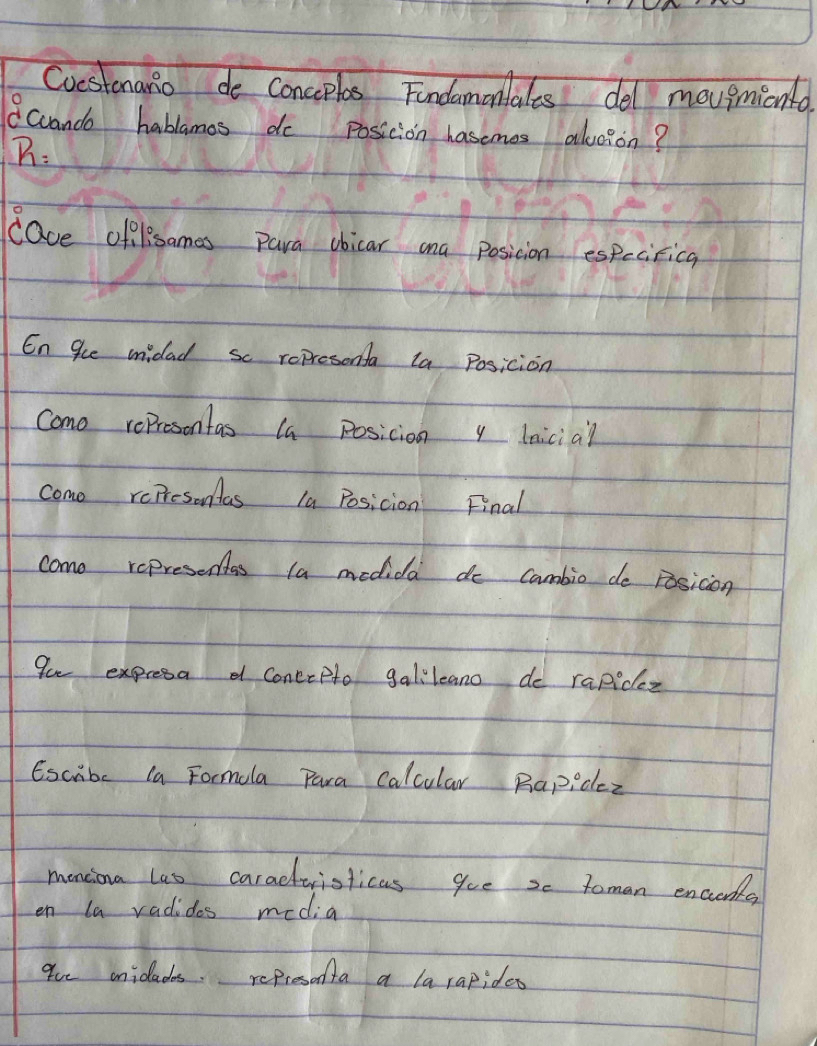 Cuestenario de Conceptos Fundamentales del movimiento.
¿Cuando hablamos de Posición hasemos alución?
R:
¿Que utilisamos Para ubicar una Posicion especifica
En que unidad se representa la Posición
Como rePresentas la Posicion y Inicial
Como rePresentas la Posicion Final
Como rePresentas la medida de cambio de Posicion
que expresa el ConcePto galileano de raPidez
Escribe la Formula Para Calcular RaPidez
menciona las caracteristicas que se toman encuenta
en la radides media
que unidades. rePresenta a la raPides